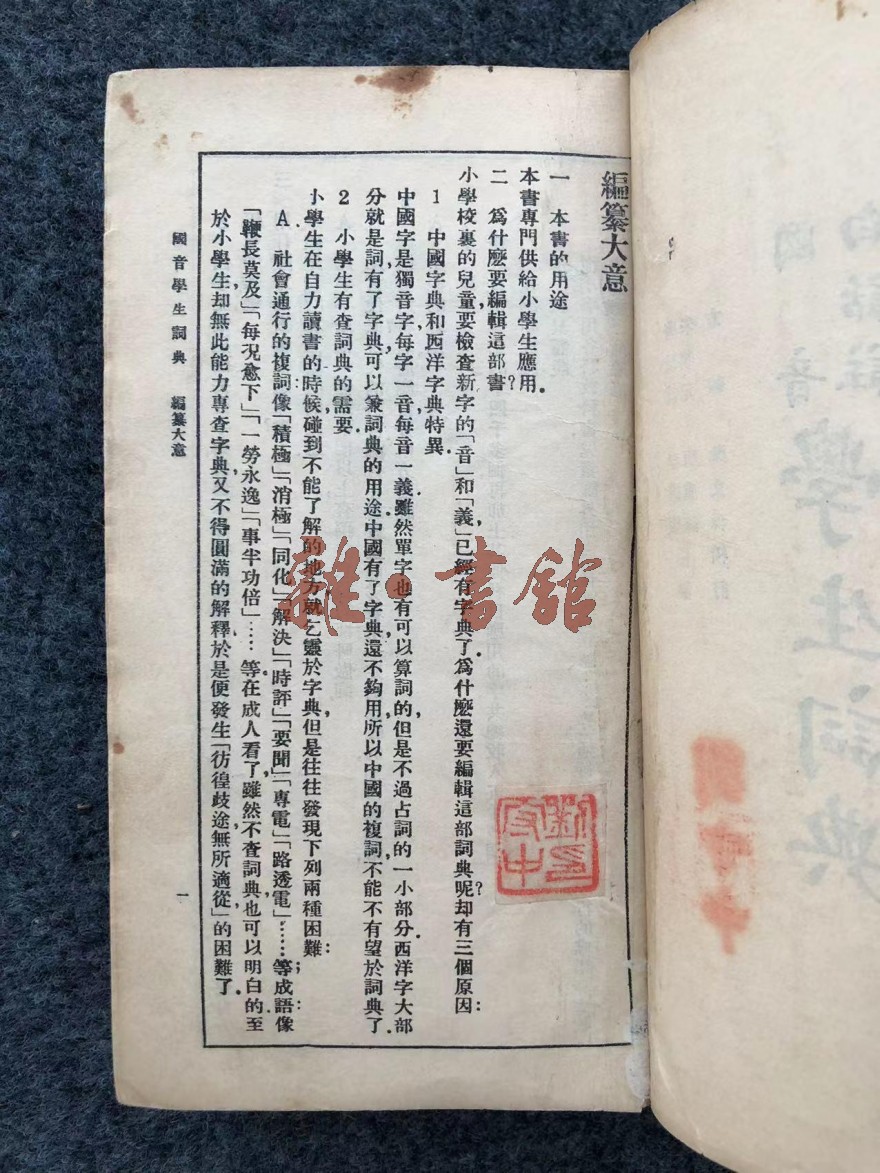 編纂大意
一 本書的用途
本書專門供給小學生應用.
二 爲什麽要編輯這部書?
小學校裏的兒童要檢查新字的「音」和「義」,已經有字典了.爲什麽還要編輯這部詞典呢?却有三個原因:
1 中國字典和西洋字典特異.
中國字是獨音字,每字一音,每音一義,雖然單字也有可以算詞的,但是不過占詞的一小部分.西洋字大部
分就是詞,有了字典,可以兼詞典的用途,中國有了字典,還不夠用,所以中國的複詞,不能不有望於詞典了.
2 小學生有查詞典的需要.
小學生在自力讀書的時候,碰到不能了解的地方,就乞靈於字典,但是往往發現下列兩種困難:
A. 社會通行的複詞:像「積極」「消極」「同化」「解決」「時評」「要聞」「專電」「路透電」……等;成語:像
「鞭長莫及」「每況愈下」「一勞永逸」「事半功倍」……等,在成人看了,雖然不查詞典,也可以明白的.至
於小學生,却無此能力,專查字典,又不得圓滿的解釋,於是便發生「彷徨歧途,無所適從」的困難了.
國音學生詞典 編纂大意
一
雜·書館
國音
白話註
學生詞典